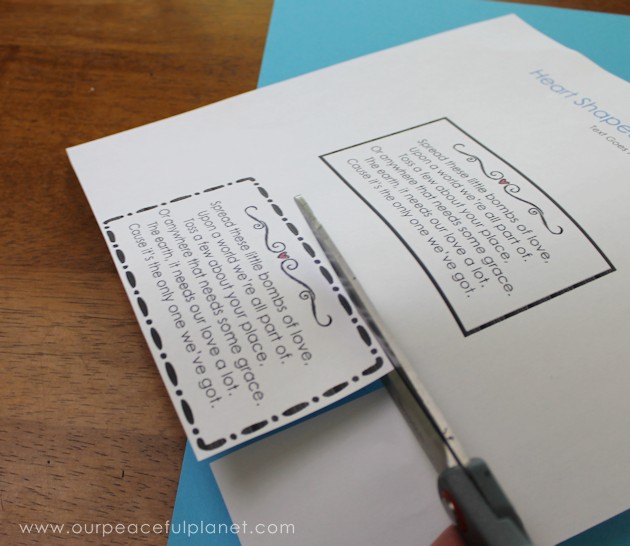 Heart Shape
Text Goes
Spread these little bombs of love,
Upon a world we're all part of.
Toss a few about your place,
Or anywhere that needs some grace.
The earth, it needs our love a lot.
Cause it's the only one we've got.
Spread these little bombs of love,
Upon a world we're all part of.
Toss a few about your place,
Or anywhere that needs some grace.
The earth, it needs our love a lot.
Cause it's the only one we've got.
www.ourpeacefulplanet.com